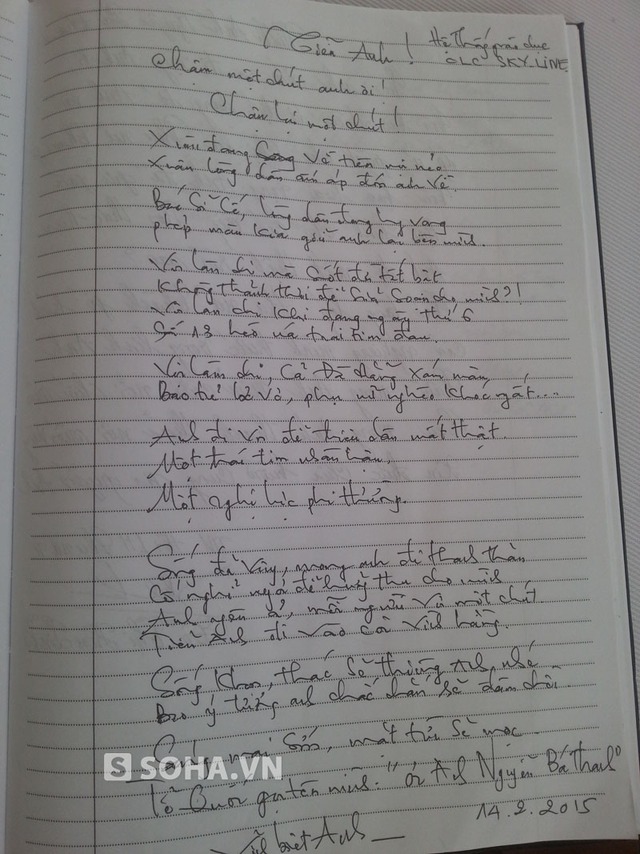 Tiễn Anh!
Hệ thống giáo dục
OLC SKY-LINE
Chậm một chút anh ơi!
Chậm lại một chút!
Xuân đang Song Về trên mọi nẻo
Xuân lòng dân ấm áp đón anh Về.
Bác Sĩ Cố, lòng dân đang hy vọng
phép màu kia giữ anh lại bên mình.
Vội làm chi mà Sốt đã tất bật
Không thảnh thơi để Sửa Soạn cho mình?!
Vội làm chi khi đang ngày thứ 6
Số 13 héo úa trái tim đau.
Vội làm chi, Cả Đà Nẵng xám màu,
Bao trẻ bơ vơ, phụ nữ nghèo khóc ngất....
Anh đi Vội để triệu dân mất thật
Một trái tim nhân hậu,
Một nghị lực phi thường.
Sống đã Vậy, mong anh đi thanh thản
Cố nghỉ ngơi để hưởng thụ cho mình
Anh yên ả, mỗi người Vơi một chút
Tiễn Anh đi Vào cõi Vĩnh hằng.
Sống khôn, thác Sẽ thương Anh nhé
Bao ý tưởng anh chắc chắn Sẽ đâm chồi.
Sáng mai Sớm, mặt trời Sẽ mọc
Tổ Quốc gọi tên mình: "ơi Anh Nguyễn Bá Thanh"
14.2.2015
Vĩnh biệt Anh
SOHA.VN